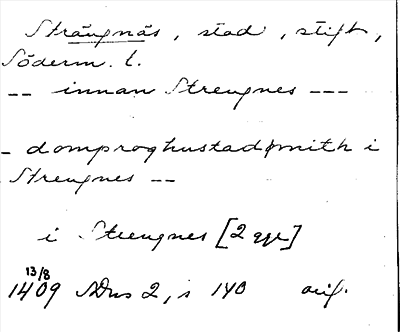 Strängnäs, stad, stift,
Söderm. l.
-- innan Strengnes ---
- domproghustadh mith i
Strengnes --
i Strengnes [2 ggr]
13/8
1409 SDns 2, s 140 orig.